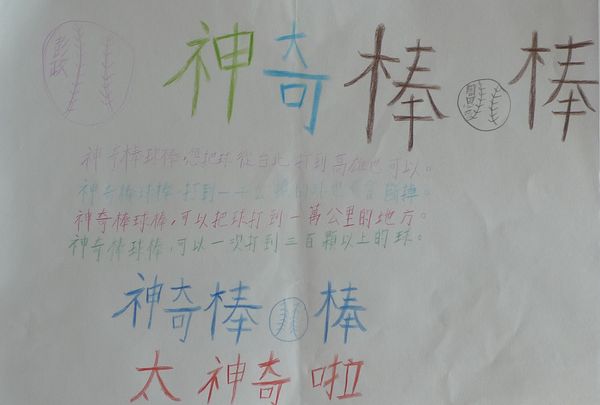 神奇棒棒
神奇棒球棒,把球從台北打到高雄也可以。
神奇棒球棒,打到一千公的球也不會斷掉。
神奇棒球棒,可以把球打到一萬公里的地方。
神奇棒球棒,可以一次打到三百顆以上的球。
神奇棒棒
太神奇啦